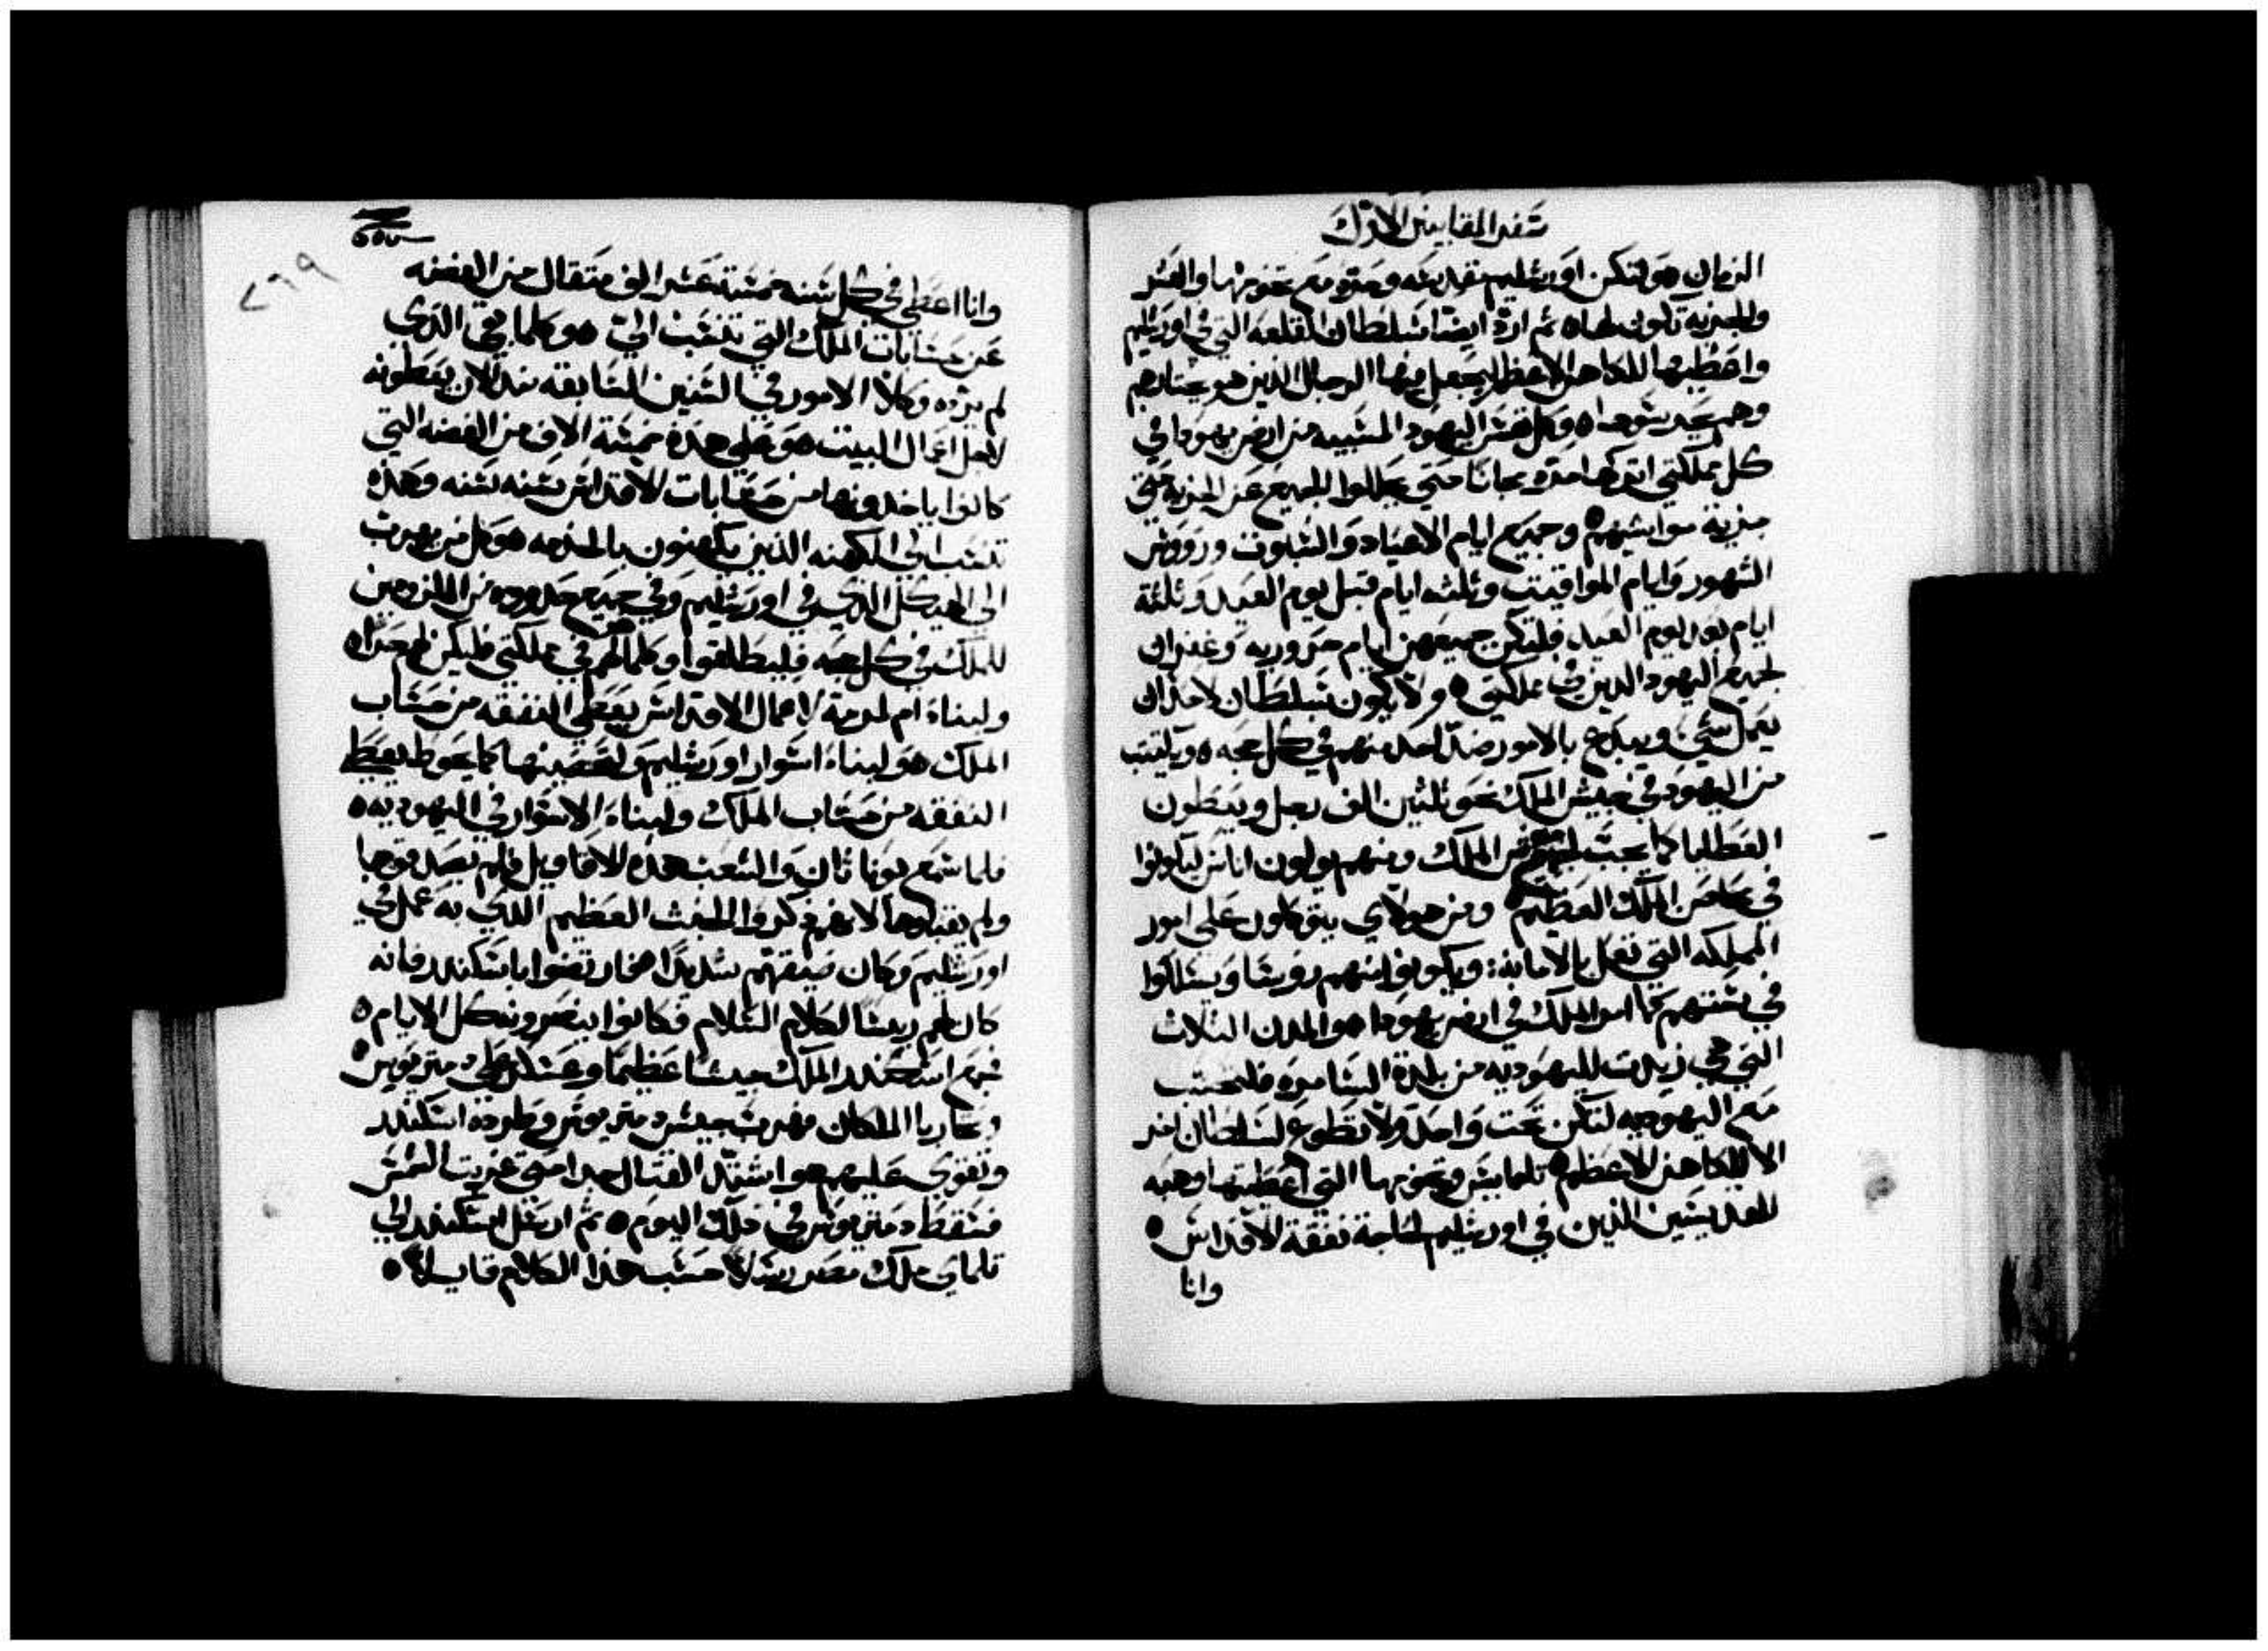 سفر المقابيين الاول
الزمان هو لتكن اورشليم مقدسه وحره مع تخومها والعشر
والجزيه تكون لها ه ثم ارد ايضا سلطان القلعه التي في اورشليم
واعطيها للكاهن الاعظم ليجعل فيها الرجال الذين هو يختارهم
وهم يحرسوها ه وكل نفس اليهود المسبيه من ارض يهودا في
كل مملكتي اتركها حره مجانا حتي يحللوا الجميع عن الجزيه حتي
جزية مواشيهم ه وجميع ايام الاعياد والسبوت وروس
الشهور وايام المواقيت وثلثه ايام قبل يوم العيد وثلثة
ايام بعد يوم العيد فلتكن جميعهن ايام حروريه وغفران
لجميع اليهود الذين في مملكتي ه ولا يكون سلطان لاحد ان
يعمل شي ويبدع بالامور ضد احد منهم في كل جهه ه ويكتتب
من اليهود في جيش الملك نحو ثلثين الف رجل ويعطون
العطايا كما يجب لجيوش الملك ومنهم يولون اناس ليكونوا
في محاصن الملك العظيم ه ومن هولاي يتوكلون علي امور
المملكه التي تعمل بالامانه: ويكونوا منهم روسا ويسلكوا
في سنتهم كما امر الملك في ارض يهودا هو المدن الثلاث
التي هي زيدت لليهوديه من بلدة السامره فلتحسب
مع اليهوديه لتكن تحت واحد ولا تطوع لسلطان اخر
الا للكاهن الاعظم ه تلمايس وتخومها التي اعطيتها وهبه
للقديسين الذين في اورشليم لحاجة نفقة الاقداس ه
وانا
وانا اعطي في كل سنه خمسة عشر الف مثقال من الفضه
عن حسابات الملك التي تنسب الي هو كلما بقي الذي
لم يرده وكلا الامور في السنين السابقه منذ الان يعطونه
لاجل اعمال البيت هو علي هذه خمسة الاف من الفضه التي
كانوا ياخدونها من حسابات الاقداس سنه سنه وهذه
تنسب الي الكهنه الذين يكهنون بالخدمه هو كل من يهرب
الى الهيكل الذي في اورشليم وفي جميع حدوده من الملزومين
للملك في كل جهه فليطلقوا وكلما لهم في مملكتي فليكن لهم حرا ه
ولبناء ام لمرمة اعمال الاقداس يعطي النفقه من حساب
الملك هو لبناء اسوار اورشليم ولتحصينها كما يحوط يعط
النفقه من حساب الملك ولبناء الاسوار في اليهوديه ه
فلما سمع يوناثان والشعب هذه الاقاويل فلم يصدقوها
ولم يقبلوها لانهم ذكروا الخبث العظيم الذي به عمل في
اورشليم وكان ضيقهم شديدا فارتضوا باسكندر فانه
كان لهم ريسا لكلام السلام فكانوا ينصرونه كل الايام ه
فجمع اسكندر الملك جيشا عظيما وعسكر علي دمتريوس ه
وتحاربا الملكان فهرب جيش دمتريوس وطرده اسكندر
وتقوي عليهم هو اشتد القتال جدا حتي غربت الشمس
فسقط دمتريوس في ذلك اليوم ه ثم ارسل اسكندر الي
تلماي ملك مصر رسلا حسب هذا الكلام قايلا ه